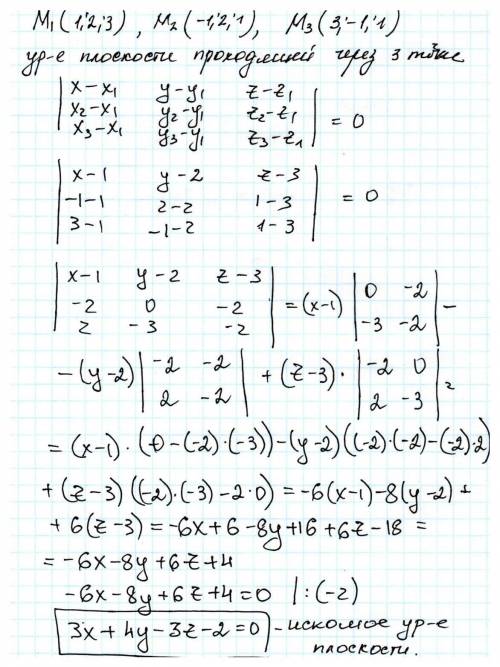 M₁(1; 2; 3), M₂(-1; 2; 1), M₃(3; -1; 1)
ур-е плоскости проходящей через 3 точки
| x-x₁ y-y₁ z-z₁ |
| x₂-x₁ y₂-y₁ z₂-z₁ | = 0
| x₃-x₁ y₃-y₁ z₃-z₁ |
| x-1 y-2 z-3 |
| -1-1 2-2 1-3 | = 0
| 3-1 -1-2 1-3 |
| x-1 y-2 z-3 |
| -2 0 -2 | = (x-1) | 0 -2 | -
| 2 -3 -2 | | -3 -2 |
-(y-2) | -2 -2 | + (z-3)· | -2 0 | =
| 2 -2 | | 2 -3 |
= (x-1)·(0-(-2)·(-3))-(y-2)((-2)·(-2)-(-2)·2)
+(z-3)((-2)·(-3)-2·0) = -6(x-1)-8(y-2)+
+6(z-3) = -6x+6-8y+16+6z-18 =
= -6x-8y+6z+4
-6x-8y+6z+4=0 |:(-2)
3x+4y-3z-2=0 - искомое ур-е
плоскости.